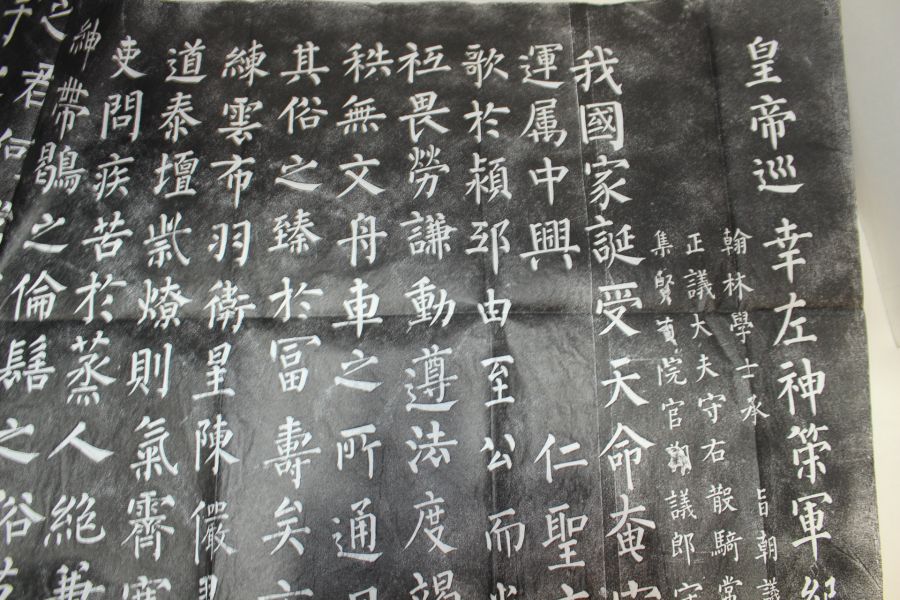 皇帝巡幸左神策軍紀
翰林學士承旨朝議
正議大夫守右散騎常
集賢院官議郎守
我國家誕受天命奄宅
運属中興仁聖
歌於潁邸由至公而光
衽畏勞謙動遵法度竭
秩無文舟車之所通日
其俗之臻於冨壽矣
練雲布羽衛星陳儼
道泰壇紫燎則氣霽寒
吏問疾苦於蒸人絕
紳帶鶡之倫髽之俗
君